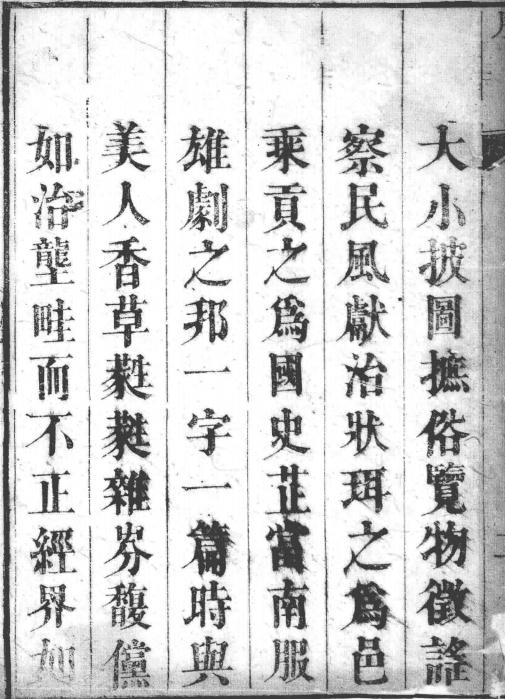 大小披圖撫俗覽物徵謠
察民風獻治狀珥之爲邑
乘貢之爲國史芷富南服
雄劇之邦一字一篇時與
美人香草蕤蕤雜芬馥儻
如治壟畦而不正經界如